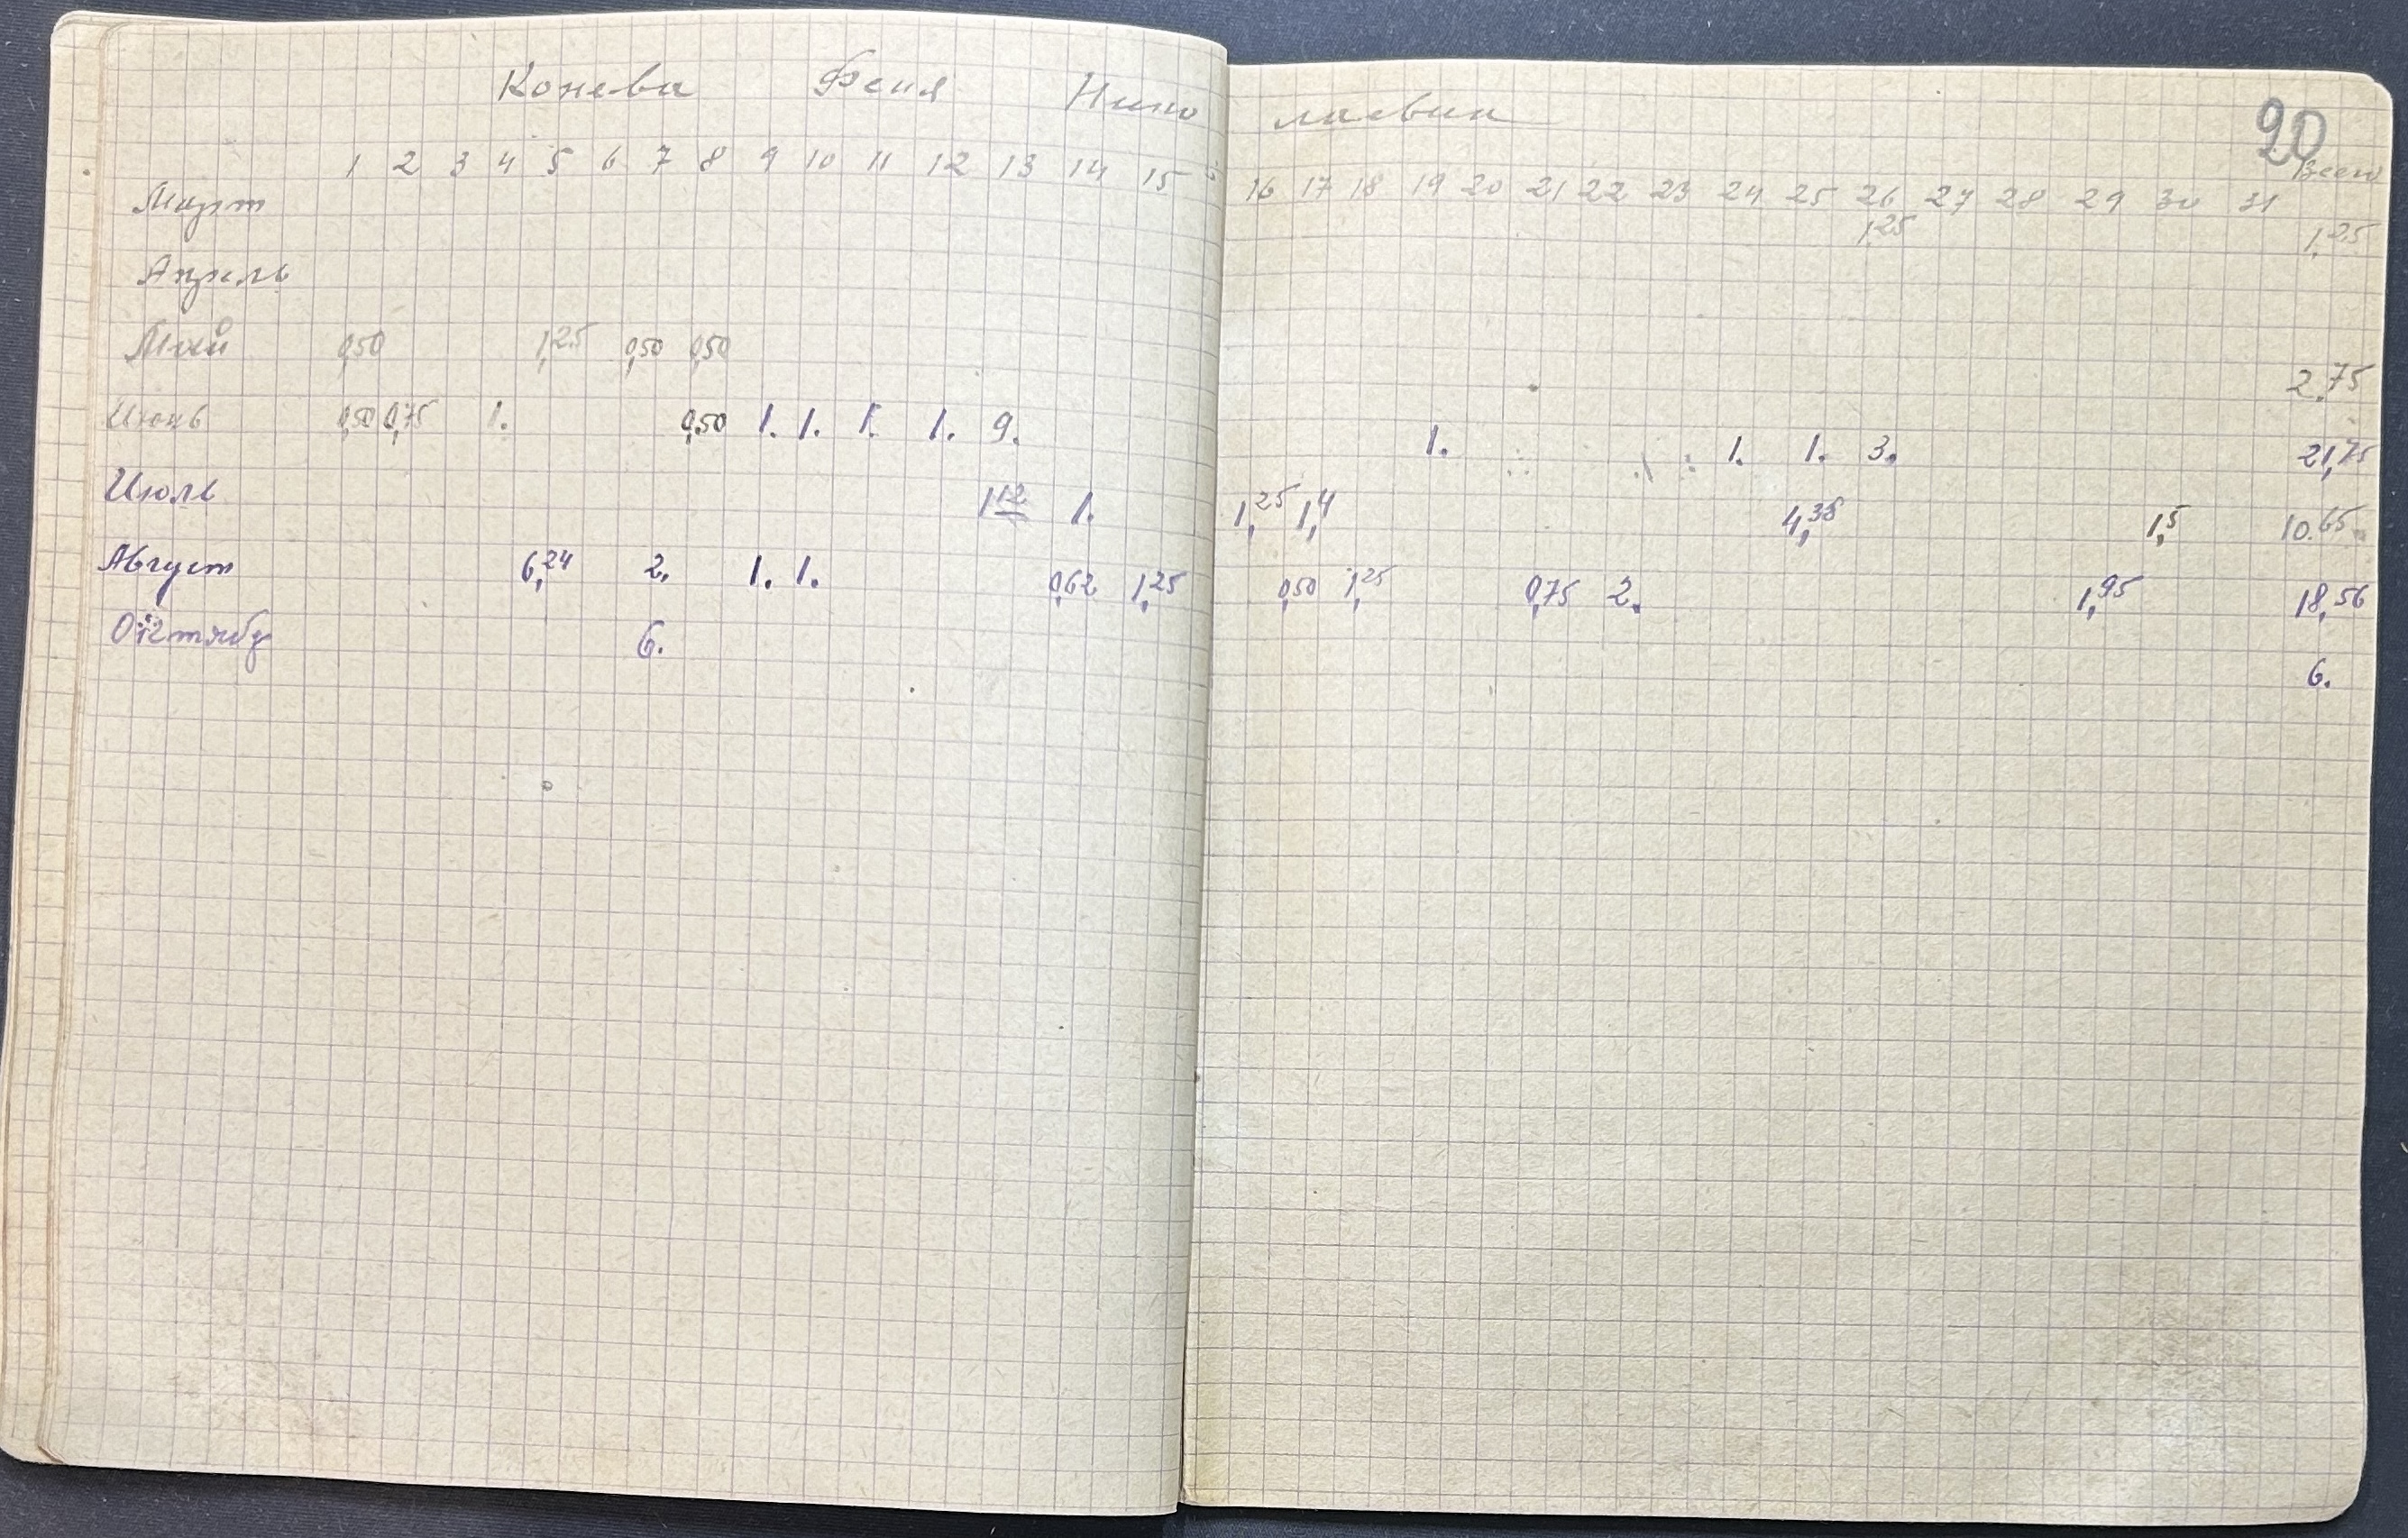 Конева Феня Николаевна
20
1 2 3 4 5 6 7 8 9 10 11 12 13 14 15 16 17 18 19 20 21 22 23 24 25 26 27 28 29 30 31 Всего
Март 1,25 1,25
Апрель
Май 0,50 1,25 0,50 0,50 2.75
Июнь 0,50 0,75 1. 0,50 1. 1. 1. 1. 9. 1. 1. 1. 3. 21,75
Июль 1 12 1. 1,25 1,4 4,38 1,5 10.65
Август 6,24 2. 1. 1. 0,62 1,25 0,50 1,25 0,75 2. 1,95 18,56
Октябр 6. 6.